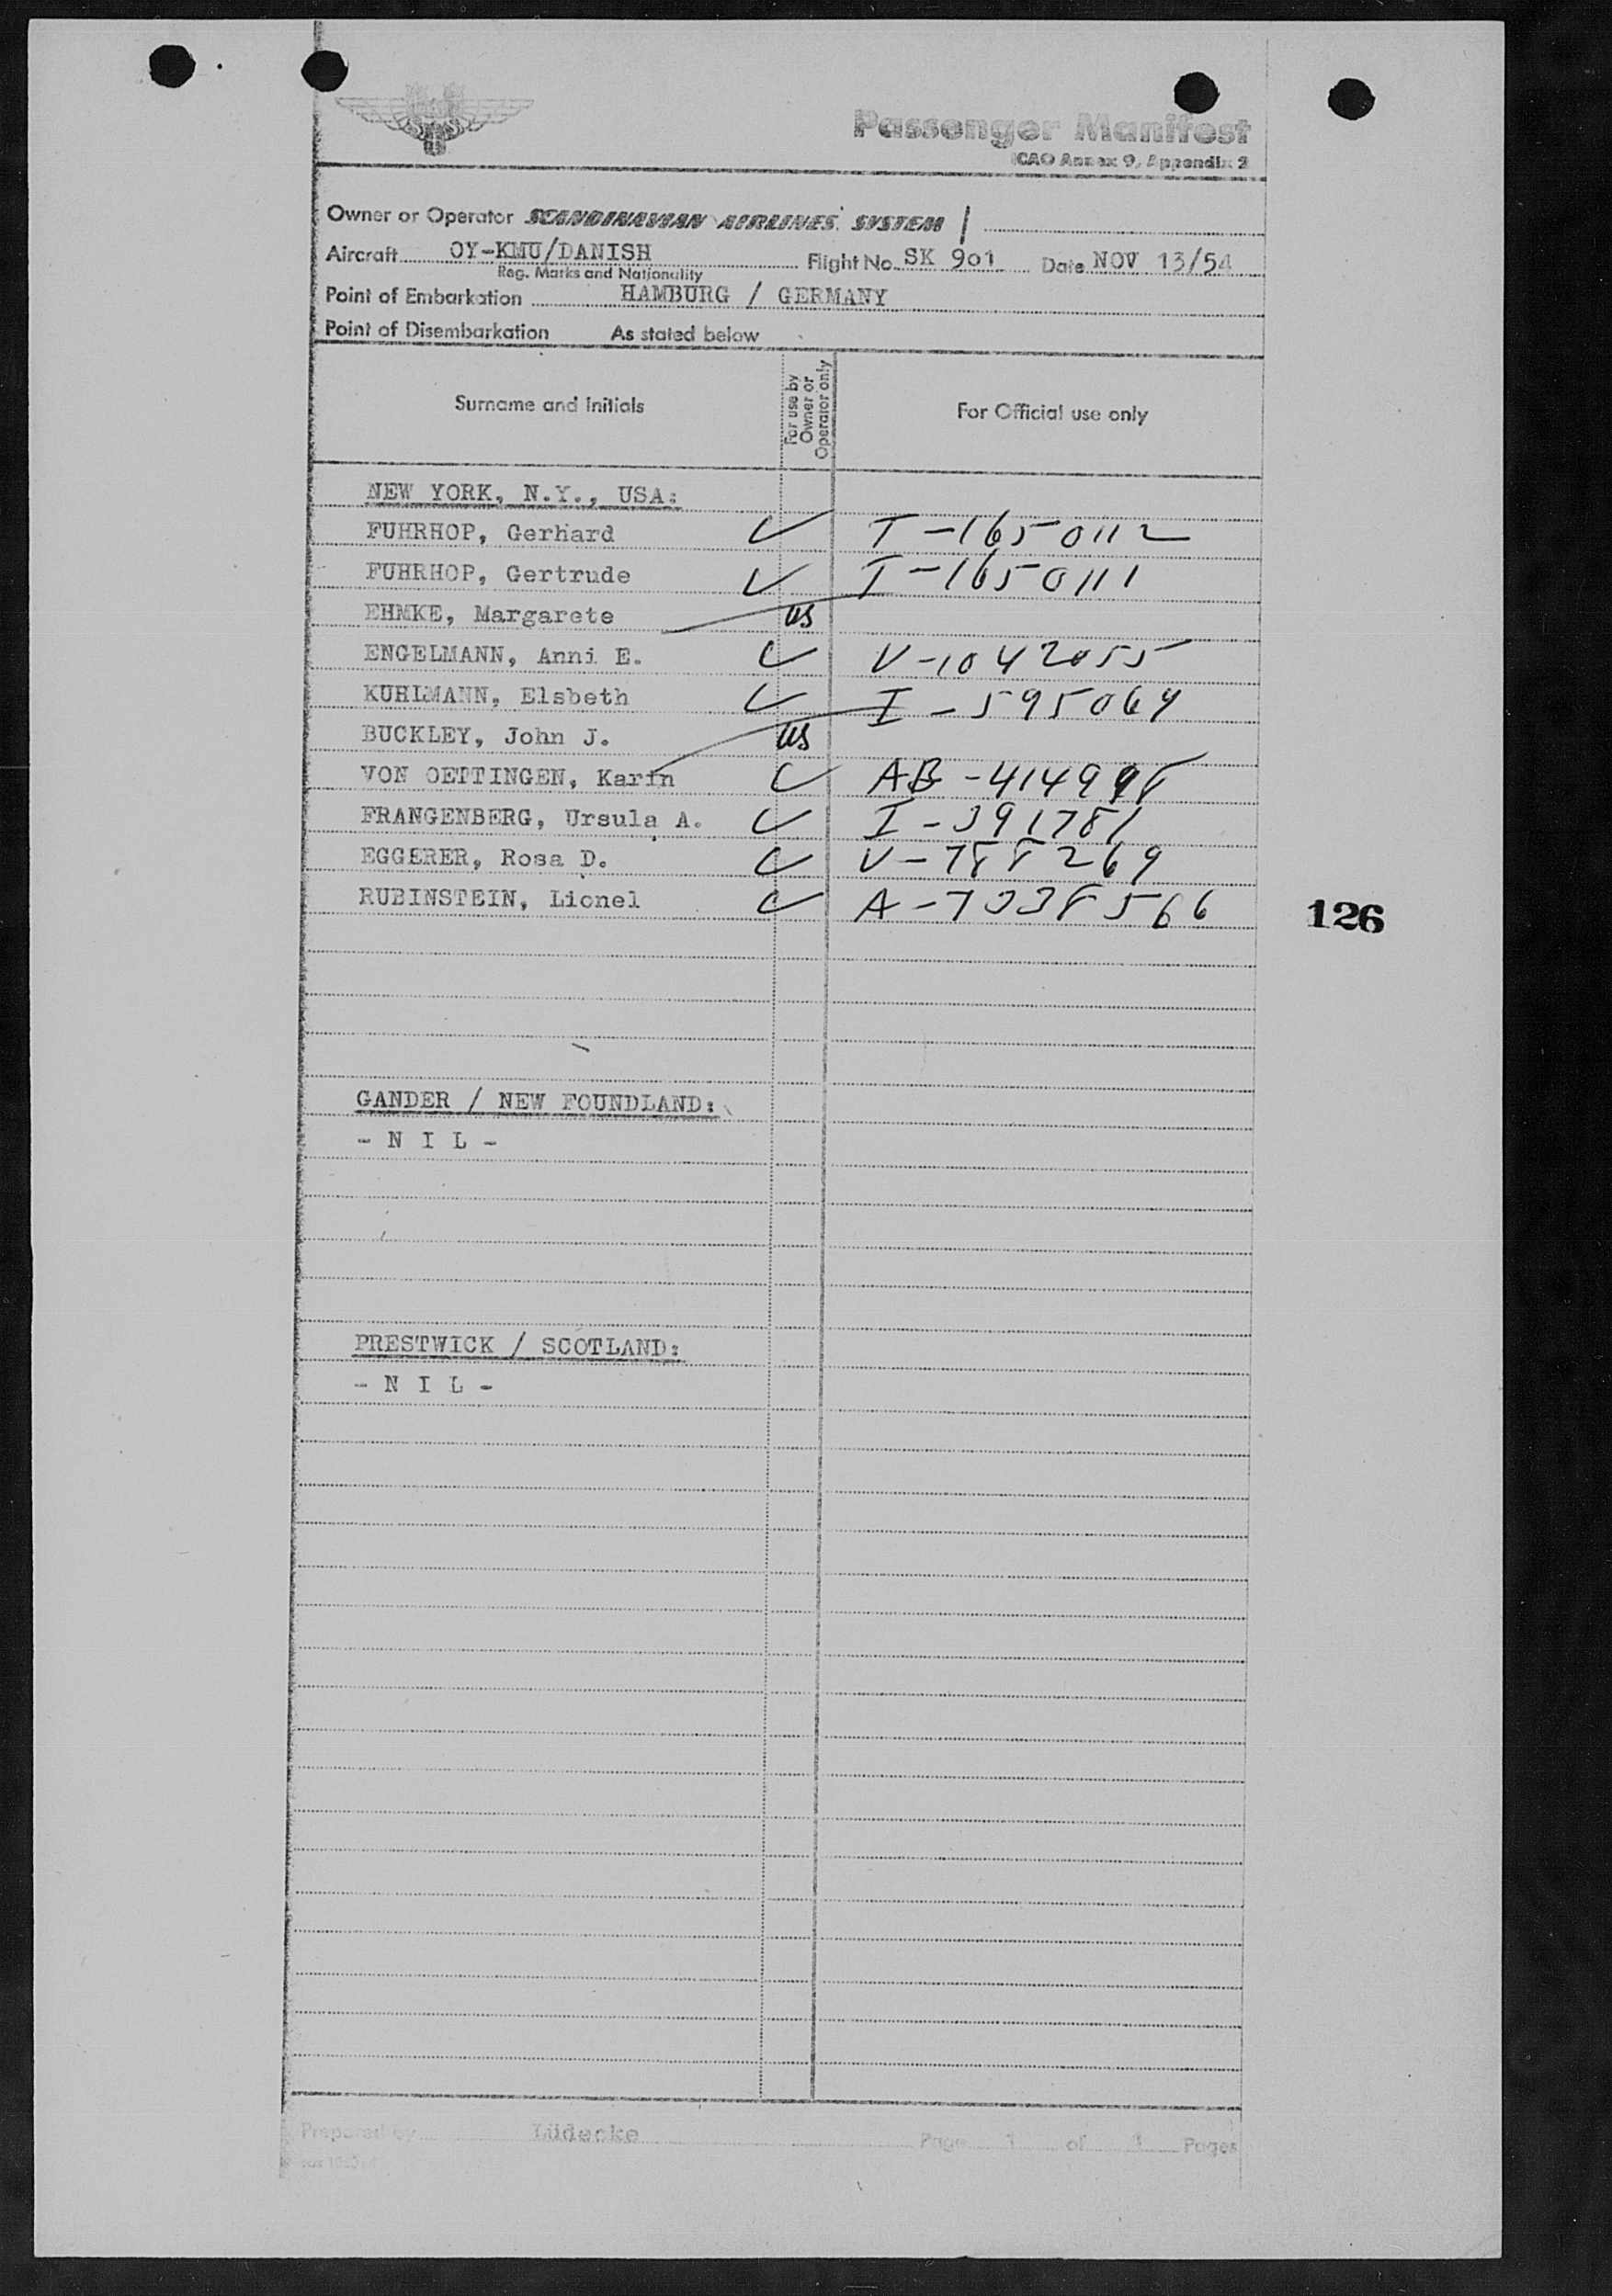 Passenger Manifest
ICAO Annex 9, Appendix 2
Owner or Operator SCANDINAVIAN AIRLINES SYSTEM
Aircraft OY-KMU/DANISH Flight No. SK 901 Date NOV 13/54
Reg. Marks and Nationality
Point of Embarkation HAMBURG / GERMANY
Point of Disembarkation As stated below
Surname and Initials For use by Owner or Operator only For Official use only
NEW YORK, N.Y., USA:
FUHRHOP, Gerhard ✓ I-1650112
FUHRHOP, Gertrude ✓ I-1650111
EHMKE, Margarete US
ENGELMANN, Anni E. ✓ V-1042055
KUHLMANN, Elsbeth ✓ I-595064
BUCKLEY, John J. US
VON OETTINGEN, Karin ✓ AB-414998
FRANGENBERG, Ursula A. ✓ I-391781
EGGERER, Rosa D. ✓ V-788269
RUBINSTEIN, Lionel ✓ A-7338566
126
GANDER / NEW FOUNDLAND:
- N I L -
PRESTWICK / SCOTLAND:
- N I L -
Prepared by Lüdecke Page 1 of 1 Pages